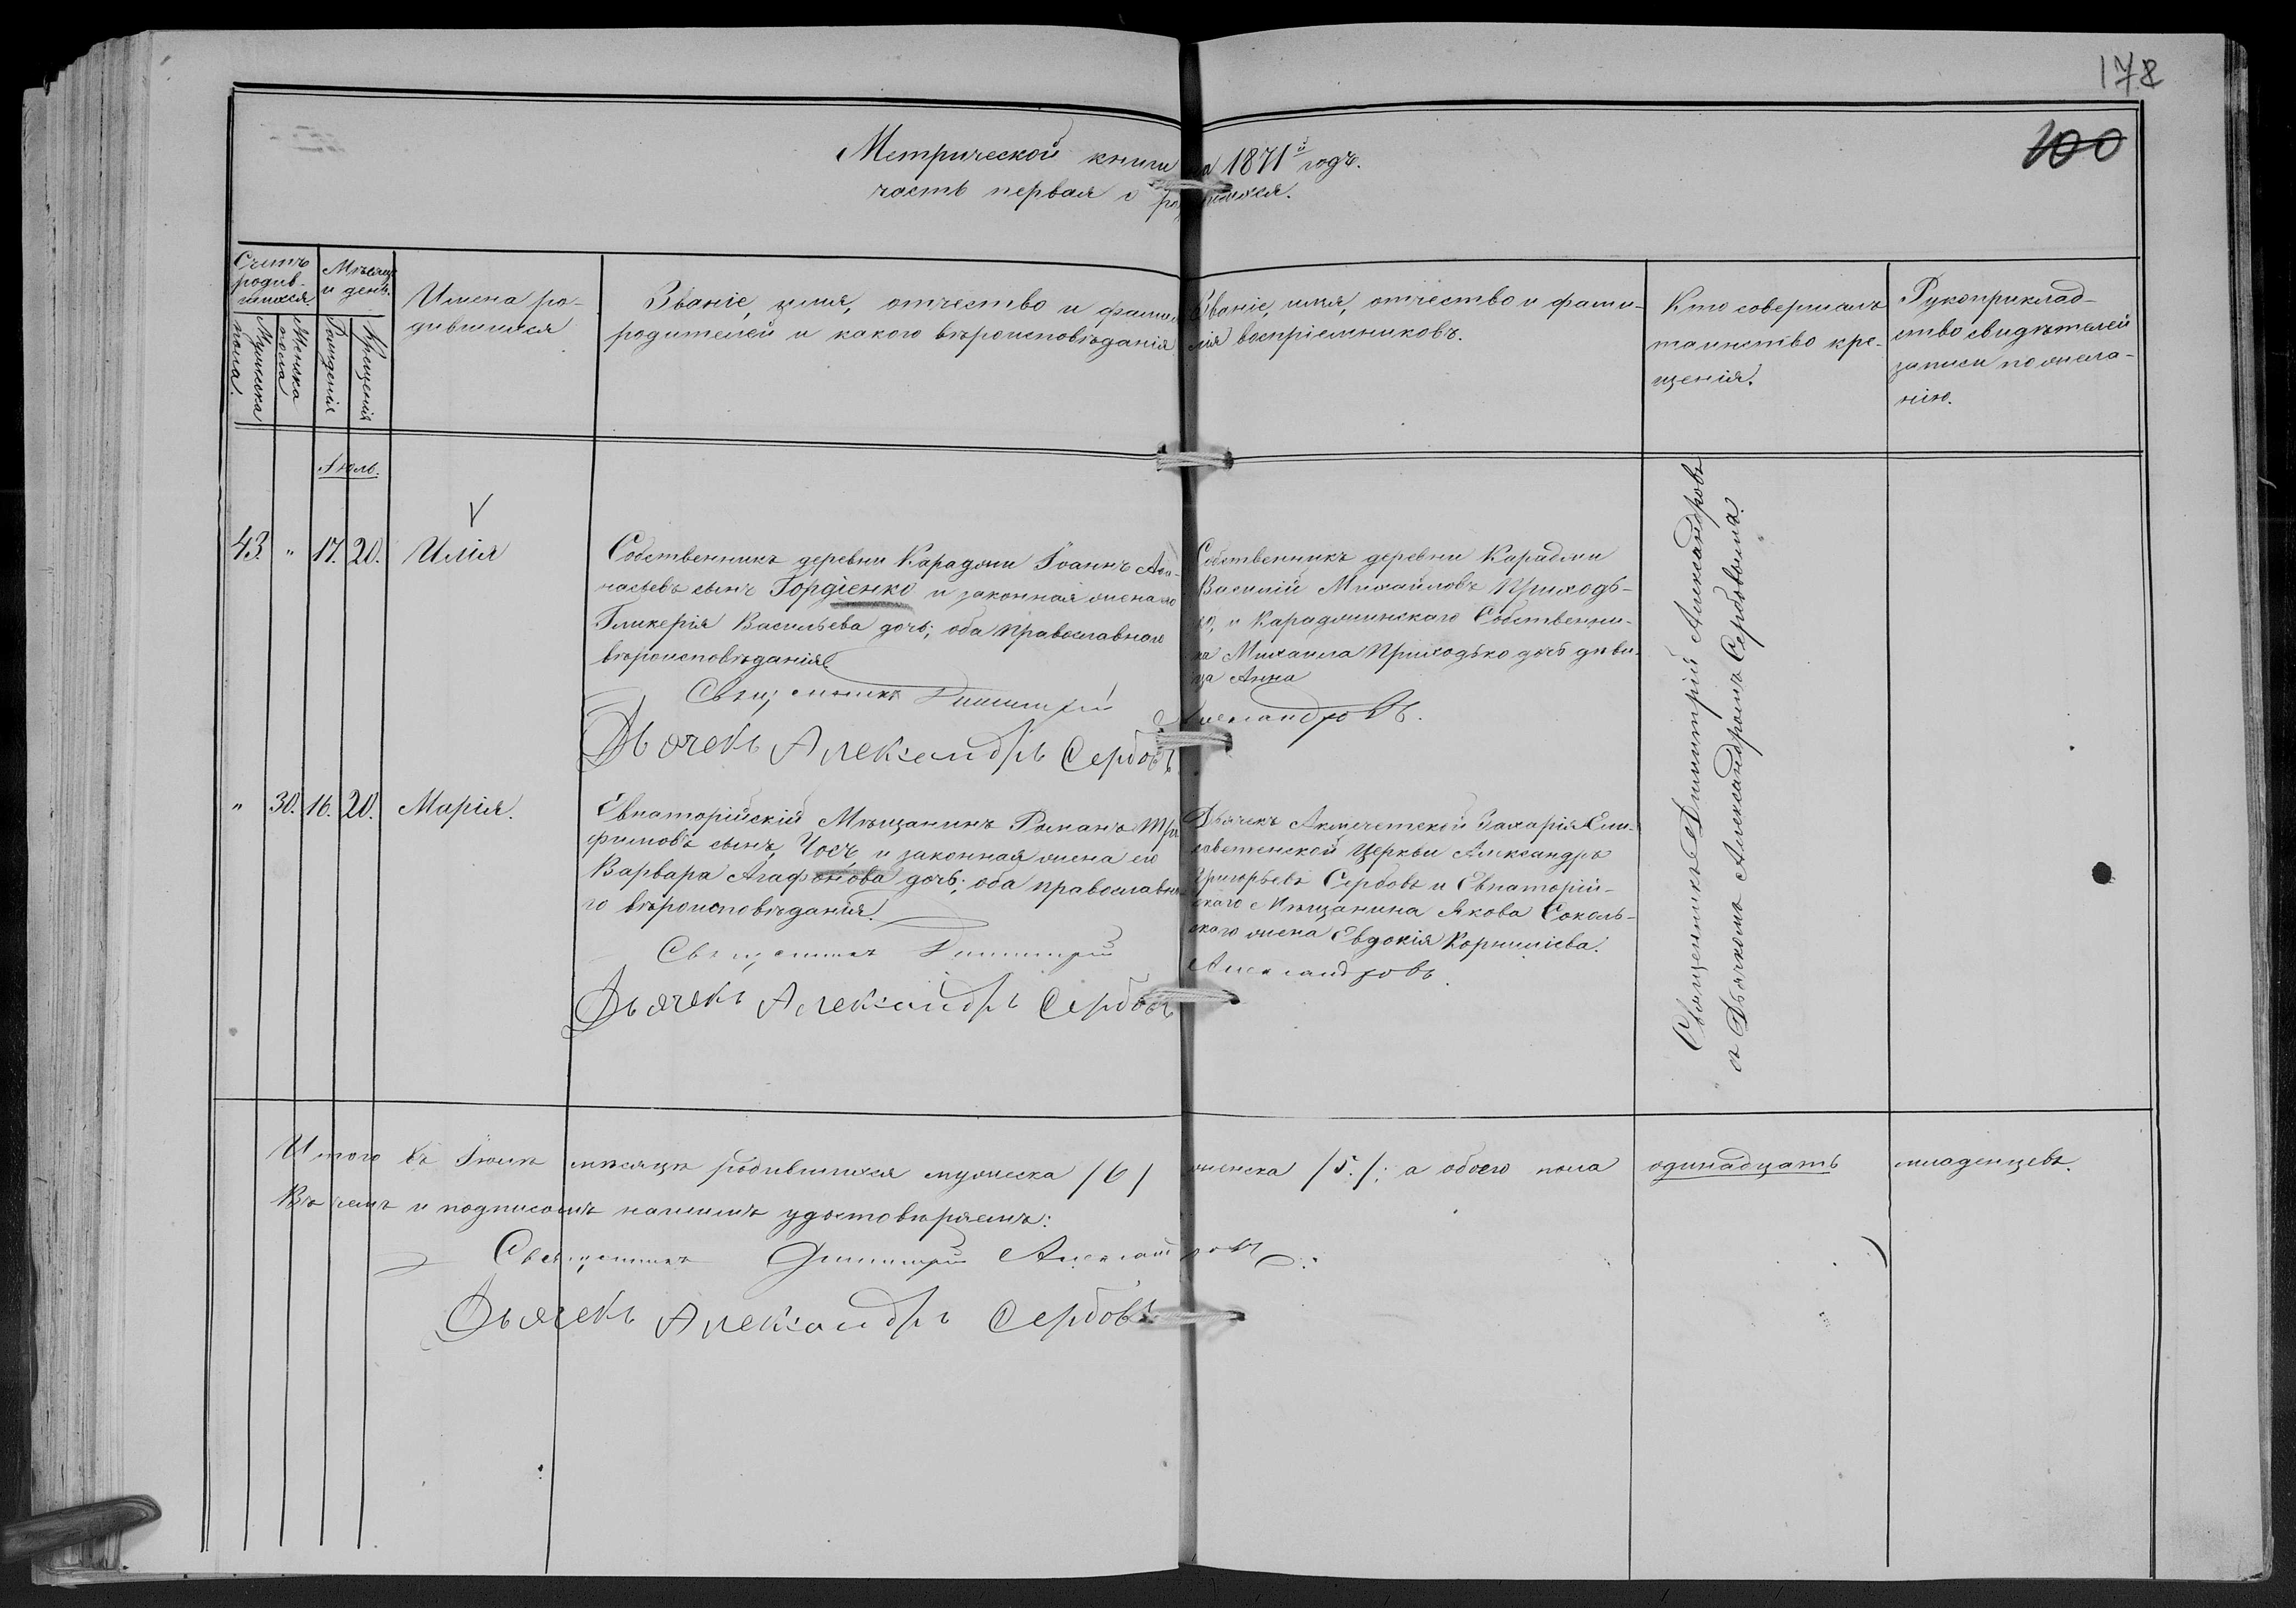 178
100
Метрической книги на 1871й годъ.
часть первая о родившихся.
Счетъ родив-
шихся.
Мужеска пола.
Женска пола
Мѣсяцъ и день.
Рожденія
Крещенія
Имена ро-
дившихся
Званіе, имя, отчество и фамилія
родителей и какого вѣроисповѣданія
Званіе, имя, отчество и фами-
лія воспріемниковъ.
Кто совершалъ
таинство кре-
щенія.
Рукоприклад-
ство свидѣтелей
записи по жела-
нію.
Іюль.
43. " 17. 20. Илія
Собственникъ деревни Караджи Іоаннъ Афа-
насьевъ сынъ Гордіенко и законная жена его
Гликерія Васильева дочь; оба Православнаго
вѣроисповѣданія
Собственникъ деревни Караджи
Василій Михайловъ Приходь-
ко, и Караджинскаго Собственни-
ка Михаила Приходько дочь дѣви-
ца Анна
Священникъ Димитрій Александровъ.
Дьячекъ Александръ Сербовъ
" 30. 16. 20. Марія.
Евпаторійскій Мѣщанинъ Романъ Три
фимовъ сынъ, Чосъ и законная жена его
Варвара Агафонова дочь; оба православна
го вѣроисповѣданія.
Дьячекъ Акмечетской Захаріе Ели-
саветенской Церкви Александръ
Григорьевъ Сербовъ и Евпаторій-
скаго Мѣщанина Якова Соколь-
скаго жена Евдокія Корниліева.
Священникъ Димитрій Александровъ.
Дьячекъ Александръ Сербовъ
Священникъ Димитрій Александровъ
съ Дьячкомъ Александромъ Сербовымъ.
Итого въ Іюлѣ мѣсяцѣ родившихся мужеска /6/ женска /5./; а обоего пола одинадцать младенцевъ.
Въ чемъ и подписомъ нашимъ удостовѣряемъ:
Священникъ Димитрій Александровъ
Дьячекъ Александръ Сербовъ